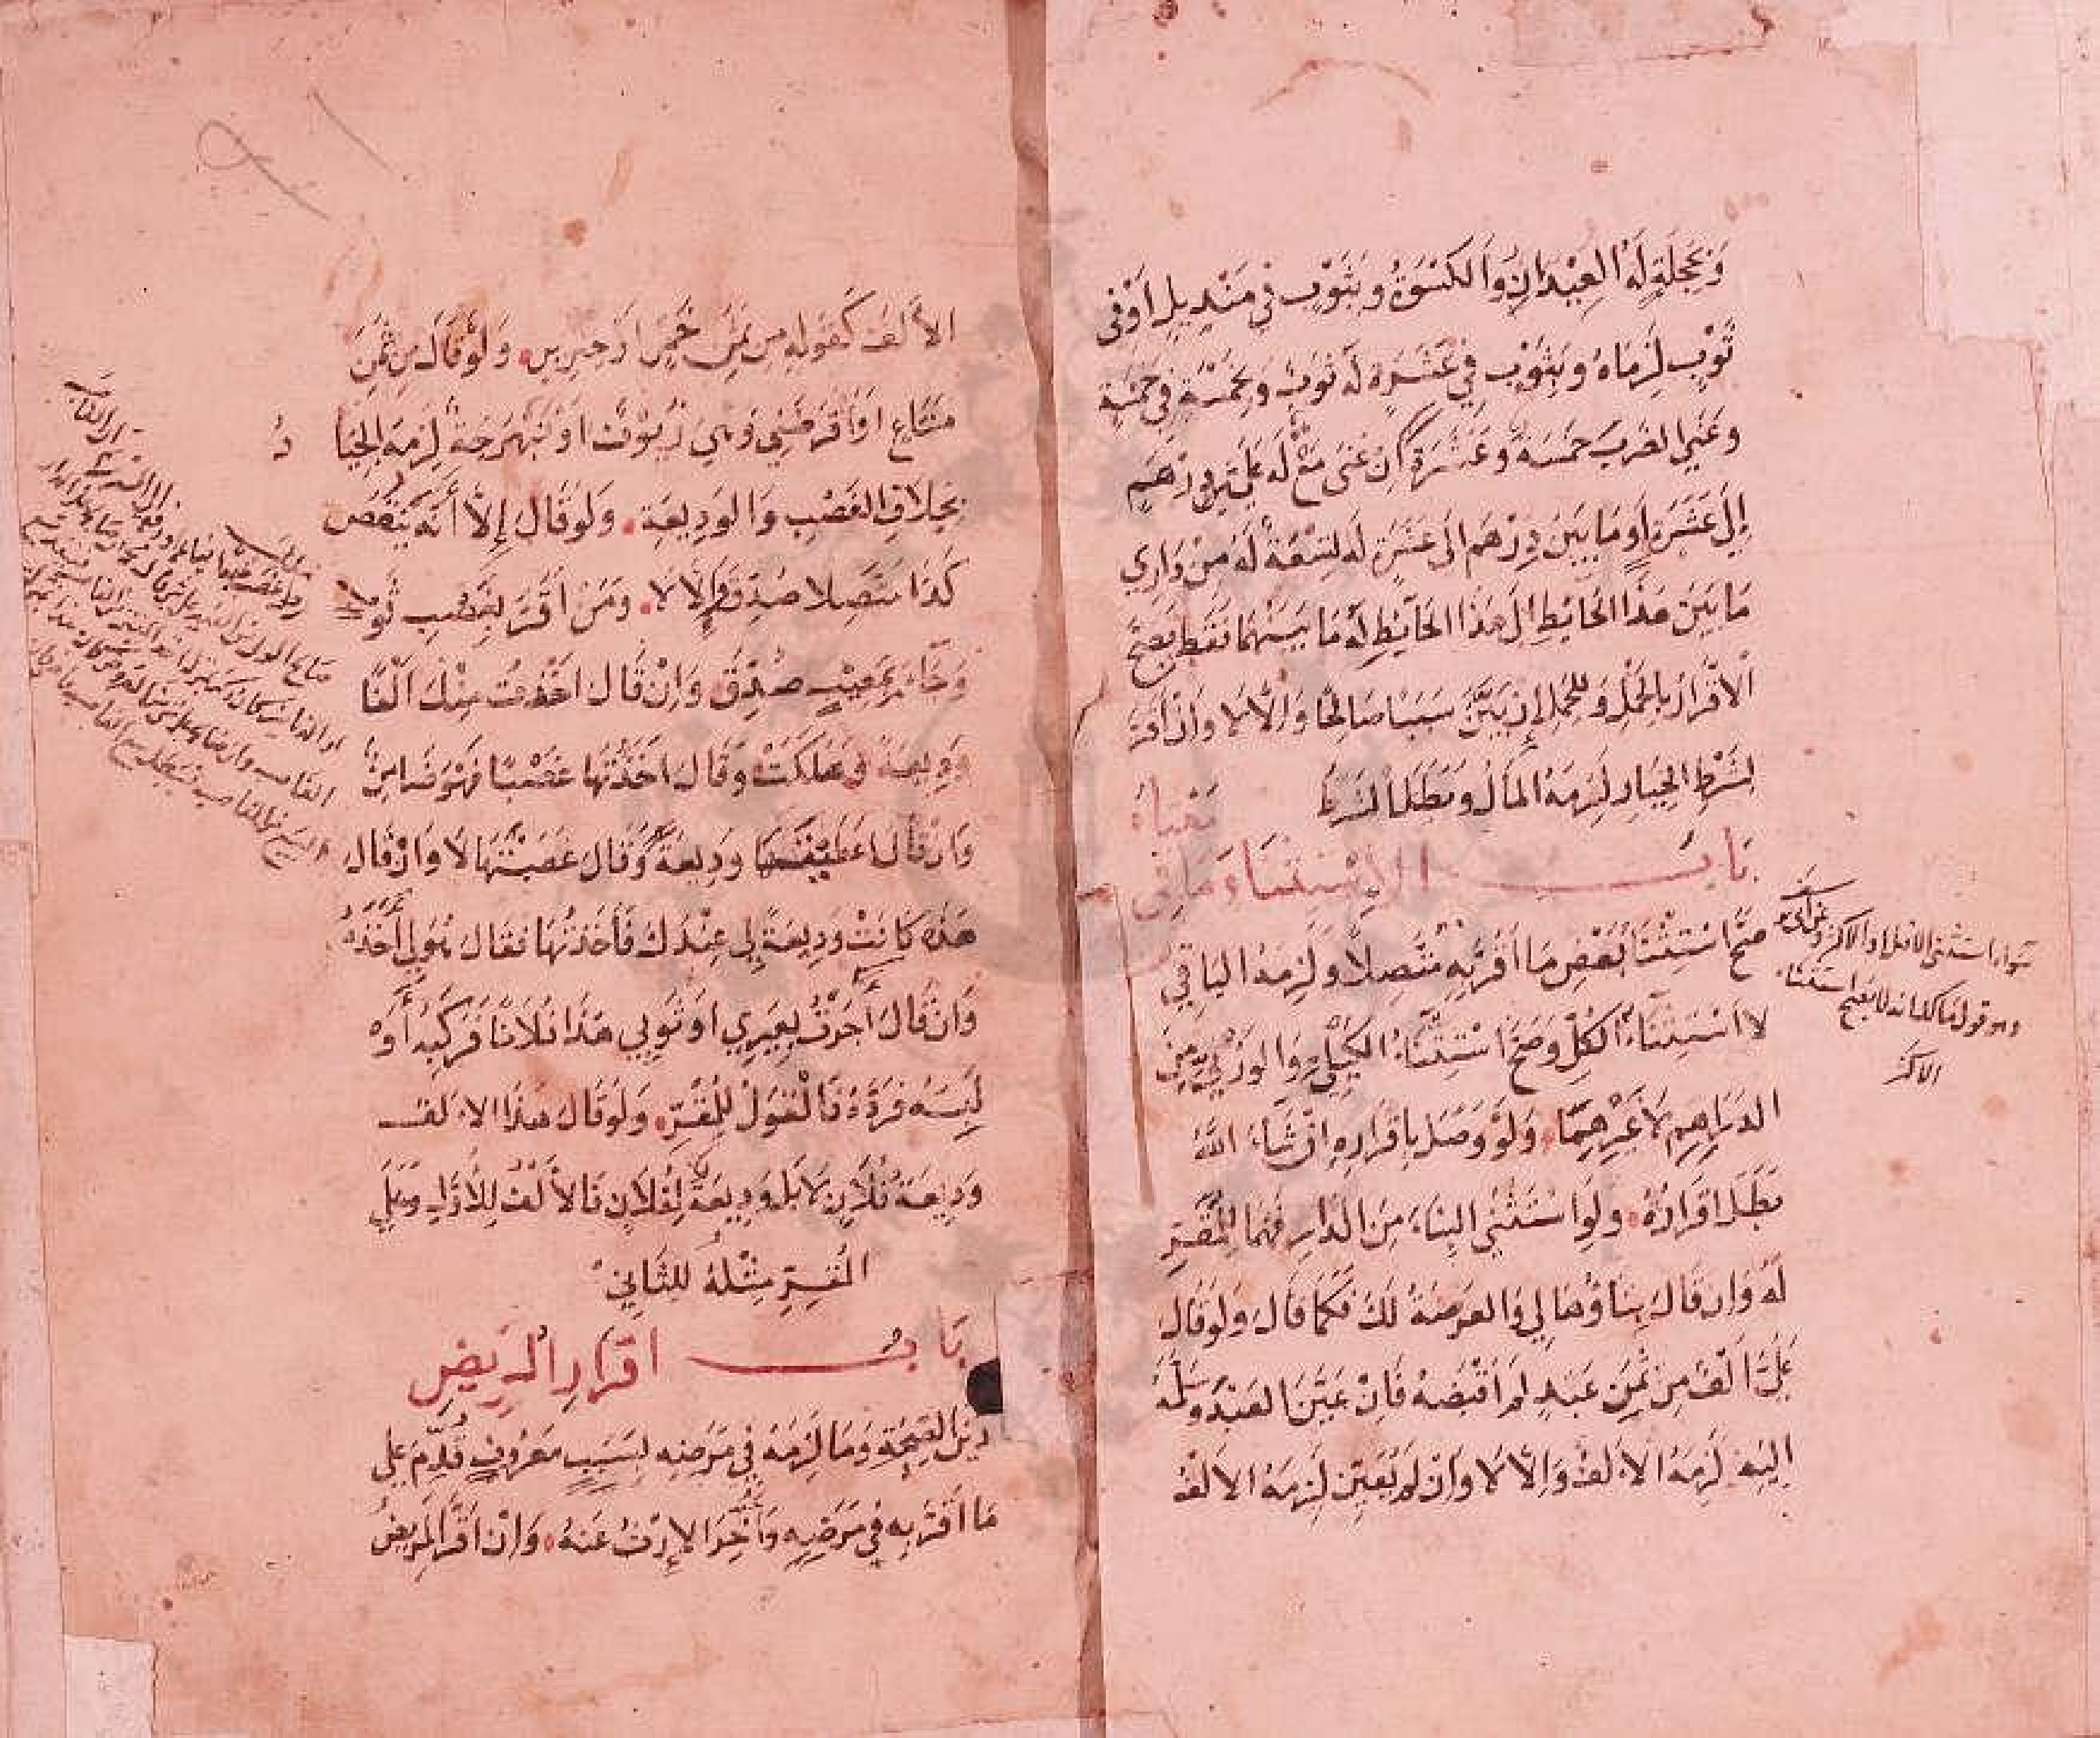 وَبِحَجَلَةٍ لَهُ العِيْدَانُ وَالكِسْوَةُ وَبِثَوْبٍ فِي مَنْدِيلٍ اَوْ فِي
ثَوْبٍ لَزِمَاهُ وَبِثَوْبٍ فِي عَشَرَةٍ لَهُ ثَوْبٌ وَبِخَمْسَةٍ فِي خَمْسَةٍ
وَعَنَى الضَرْبَ خَمْسَةٌ وَعَشَرَةٌ اِنْ عَنَى مَعَ لَهُ عَلَيَّ مِنْ دِرْهَمٍ
اِلَى عَشَرَةٍ اَوْ مَا بَيْنَ دِرْهَمٍ اِلَى عَشَرَةٍ لَهُ تِسْعَةٌ لَهُ مِنْ دَارِي
مَا بَيْنَ هَذَا الحَائِطِ اِلَى هَذَا الحَائِطِ لَهُ مَا بَيْنَهُمَا فَقَطْ وَصَحَّ
الاقْرَارُ بِالحَمْلِ وَلِلْحَمْلِ اِنْ بَيَّنَ سَبَبًا صَالِحًا وَاِلَّا لَا وَاِنْ اَقَرَّ
بِشَرْطِ الخِيَارِ لَزِمَهُ المَالُ وَبَطَلَ الشَرْطُ
بَابُ الاِسْتِثْنَاءِ وَمَا فِي مَعْنَاهُ
صَحَّ اسْتِثْنَا بَعْضِ مَا اَقَرَّ بِهِ مُتَّصِلًا وَلَزِمَهُ البَاقِي
لا اسْتِثْنَاءُ الكُلِّ وَصَحَّ اسْتِثْنَاءُ الكَيْلِيِّ وَالوَزْنِيِّ مِنَ
الدَرَاهِمِ لَا غَيْرِهِمَا وَلَوْ وَصَلَ بِاقْرَارِهِ اِنْ شَاءَ اللهُ
بَطَلَ اقْرَارُهُ وَلَوِ اسْتَثْنَى البِنَاءَ مِنَ الدَارِ فَهُمَا لِلْمُقَرِّ
لَهُ وَاِنْ قَالَ بِنَاؤُهَا لِي وَالعَرْصَةُ لَكَ فَكَمَا قَالَ وَلَوْ قَالَ
عَلَيَّ اَلْفٌ مِنْ ثَمَنِ عَبْدٍ لَمْ اَقْبِضْهُ فَاِنْ عَيَّنَ العَبْدَ وَسَلَّمَهُ
اِلَيْهِ لَزِمَهُ الاَلْفُ وَاِلَّا لَا وَاِنْ لَمْ يُعَيِّنْ لَزِمَهُ الاَلْفُ
سواء استثنى الاقل او الاكثر وعن ابي يوسف
وهو قول مالك انه لا يصح استثناء
الاكثر
الأَلْفُ كَقَوْلِهِ مِنْ ثَمَنِ خَمْرٍ اَوْ خِنْزِيرٍ وَلَوْ قَالَ مِنْ ثَمَنِ
مَتَاعٍ اَوْ اَقْرَضَنِي وَهِيَ زُيُوْفٌ اَوْ نَبَهْرَجَةٌ لَزِمَهُ الجِيَادُ
بِخِلَافِ الغَصْبِ وَالوَدِيعَةِ وَلَوْ قَالَ إِلَّا أَنَّهُ يَنْقُصُ
كَذَا مُتَّصِلًا صُدِّقَ وَإِلَّا لَا وَمَنْ اَقَرَّ بِغَصْبِ ثَوْبٍ
وَجَاءَ بِمَعِيْبٍ صُدِّقَ وَاِنْ قَالَ اَخَذْتُ مِنْكَ اَلْفًا
وَدِيعَةً وَهَلَكَتْ وَقَالَ اَخَذْتَهَا غَصْبًا فَهُوَ ضَامِنٌ
وَاِنْ قَالَ اَعْطَيْتَنِيهَا وَدِيعَةً وَقَالَ غَصَبْتَهَا لَا وَاِنْ قَالَ
هَذِهِ كَانَتْ وَدِيعَةً لِي عِنْدَكَ فَأَخَذْتُهَا فَقَالَ هُوَ لِي أَخَذَهُ
وَاِنْ قَالَ آجَرْتُ بَعِيرِي اَوْ ثَوْبِي هَذَا فُلَانًا فَرَكِبَهُ أَوْ
لَبِسَهُ فَرَدَّهُ فَالْقَوْلُ لِلْمُقِرِّ وَلَوْ قَالَ هَذَا الاَلْفُ
وَدِيعَةُ فُلَانٍ لَا بَلْ وَدِيعَةٌ لِفُلَانٍ فَالاَلْفُ لِلْأَوَّلِ وَعَلَى
المُقِرِّ مِثْلُهُ لِلثَّانِي
بَابُ اقْرَارِ المَرِيضِ
دَيْنُ الصِحَّةِ وَمَا لَزِمَهُ فِي مَرَضِهِ بِسَبَبٍ مَعْرُوفٍ قُدِّمَ عَلَى
مَا اَقَرَّ بِهِ فِي مَرَضِهِ وَأُخِّرَ الإِرْثُ عَنْهُ وَاِنْ اَقَرَّ المَرِيضُ